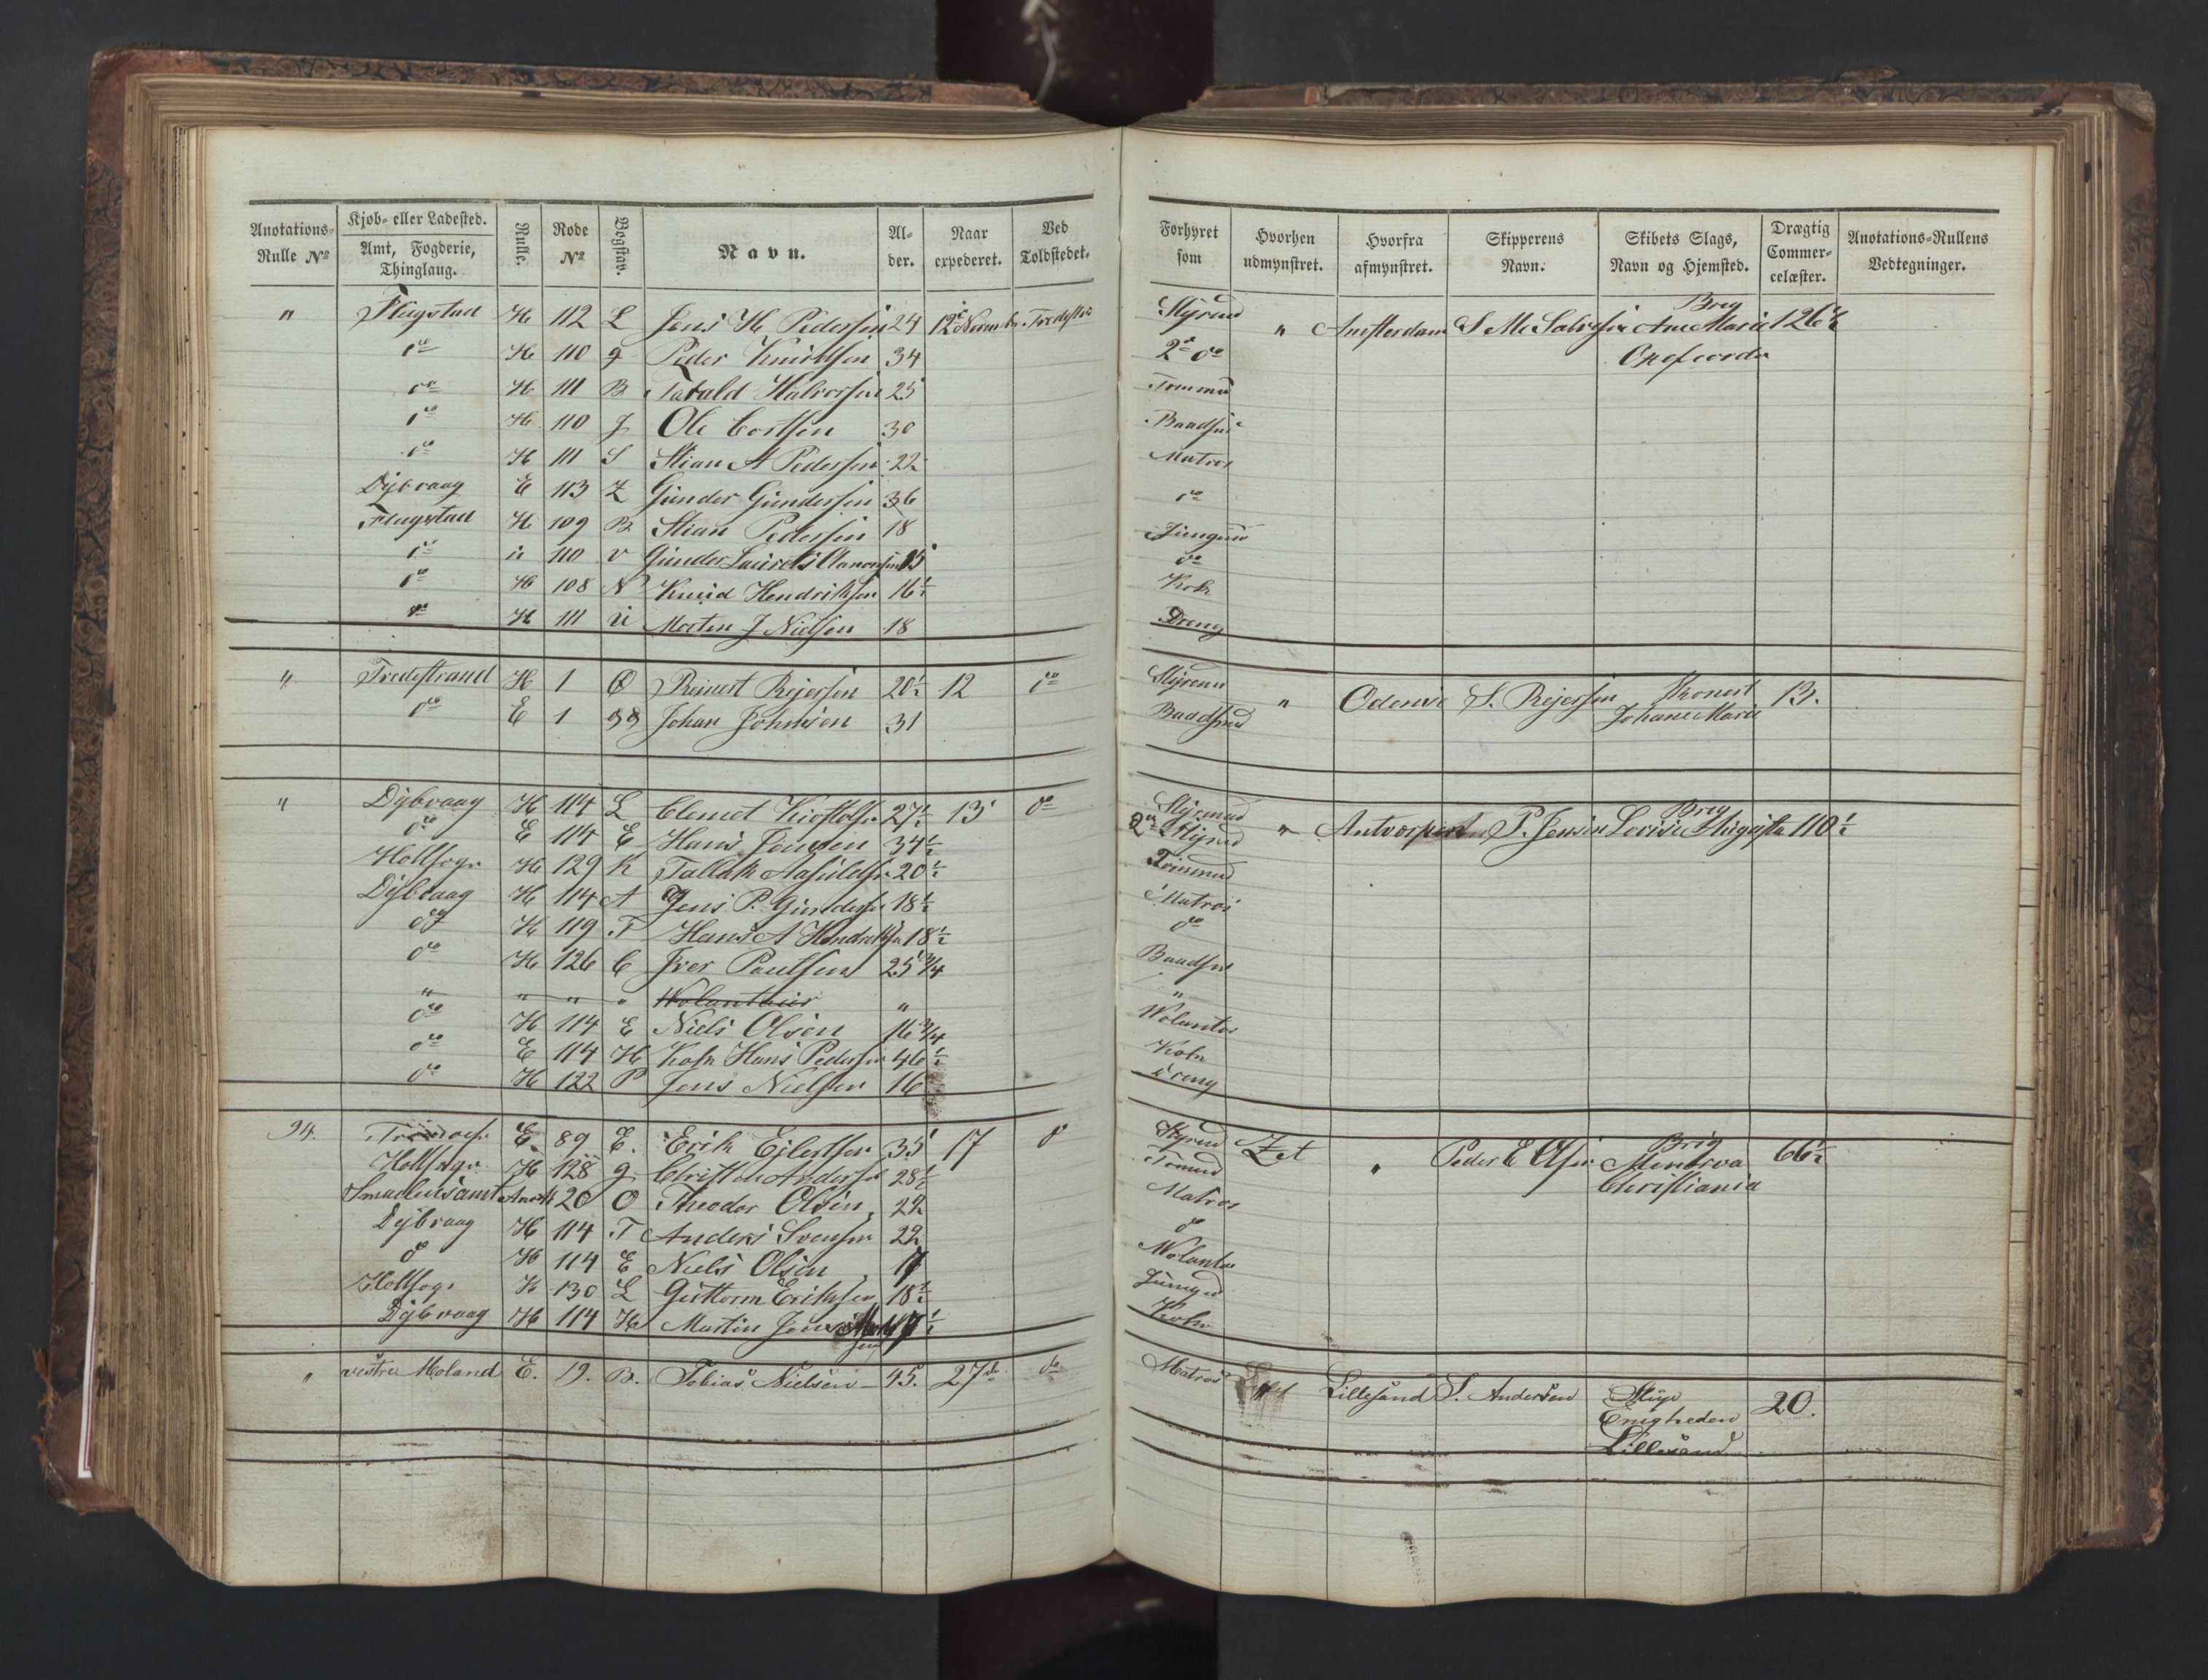 Anotations-Rulle No | Kjøb- eller Ladested. Amt, Fogderie, Thinglaug. | Rulle. | Rode No | Bogstav. | Navn. | Alder. | Naar expederet. | Ved Toldstedet. | Forhyret som | Hvorhen udmynstret. | Hvorfra afmynstret. | Skipperens Navn. | Skibets Slags, Navn og Hjemsted. | Drægtig Commercelæster. | Anotations-Rullens Vedtegninger.
" | Flugstad | H | 112 | L | Jens H Pedersen | 24 | 12 Novemb. | | Styrmd | " | Amsterdam | | Brig Ane Marie | 126½
do | H | 110 | g | Peder Knudsen | 34 | 2 do
do | H | 111 | B | Halvorsen | 25 | Tømmd
do | H | 110 | J | Ole | 30 | Baadsm
do | H | 111 | S | Stian A Pedersen | 22 | Matros
Dybvaag | E | 113 | Z | Gunder Gundersen | 36 | do
Flugstad | H | 109 | B | Stian Pedersen | 18 | Jungmd
do | " | 110 | v | Gunder | 15 | do
do | H | 108 | N | Knud Hendriksen | 16½ | Kok
do | H | 111 | ü | Morten J Nielsen | 18 | Dreng
" | Tvedestrand | H | 1 | Q | Reinert Rejersen | 20½ | 12 | do | Styrmd | " | Odense | S. Rejersen | Johane Marie | 13.
do | E | 1 | | Johan Johnsen | 31 | Baadsmd
" | Dybvaag | H | 114 | L | Clemet | 27½ | 13 | do | Styrmd | " | Antverpen | P. Jensen | Brig Lovise Augusta | 110½
do | E | 114 | E | Hans Jensen | 34½ | 2den Styrmd
Holtsogn | H | 129 | K | Tallak | 20½ | Tømmd
Dybvaag | H | 114 | A | Jens P. Gundersen | 18½ | Matros
do | H | 119 | F | Hans A Hendriksen | 18½ | do
do | H | 126 | C | Iver Paulsen | 25¾ | Baadsm
" | " | " | " | Wolantair | " | "
do | H | 114 | E | Niels Olsen | 16¾ | Wolontør
do | E | 114 | H | Kok Hans Pedersen | 46½ | Kok
do | H | 122 | P | Jens Nielsen | 16 | Dreng
94. | | E | 89 | E. | Erik Eilertsen | 35 | 17 | do | Styrmd | Zet | " | Peder E Olsen | Brig Minerva Christiania | 66½
Holtsogn | H | 128 | g | Andersen | 28½ | Tømmd
Smaalensamt | | 20 | O | Theodor Olsen | 22 | Matros
Dybvaag | H | 114 | T | Anders Svensen | 22 | do
do | H | 114 | E | Niels Olsen | 17 | Wolontør
Holtsogn | H | 130 | L | Guttorm Eriksen | 18½ | Jungmd
Dybvaag | H | 114 | H | Martin | 17½ | Kok
" | vestre Moland | E. | 19. | B. | Tobias Nielsen | 45. | 27de | do | Matros | " | Lillesand | S. Andersen | Slup Enigheden Lillesand | 20.